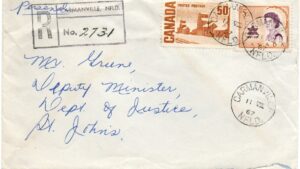 Personal
CARMANVILLE, NFLD.
R
No. 2731
CANADA
POSTES POSTAGE
50
Mr. Grune,
Deputy Minister,
Dept of Justice,
St. Johns.
CARMANVILLE
11
67
NFLD.